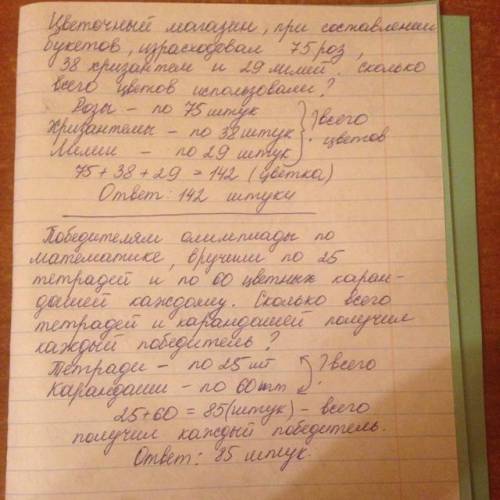 Цветочный магазин, при составлении
букетов, израсходовал 75 роз,
38 хризантем и 29 лилий. Сколько
всего цветов использовали?
Розы - по 75 штук
Хризантемы - по 38 штук } ? всего цветов
Лилии - по 29 штук
75 + 38 + 29 = 142 (цветка)
Ответ: 142 штуки
Победителям олимпиады по
математике, вручили по 25
тетрадей и по 60 цветных каран-
дашей каждому. Сколько всего
тетрадей и карандашей получил
каждый победитель?
Тетради - по 25 шт ? всего
Карандаши - по 60 шт
25 + 60 = 85 (штук) - всего
получил каждый победитель.
Ответ: 85 штук.